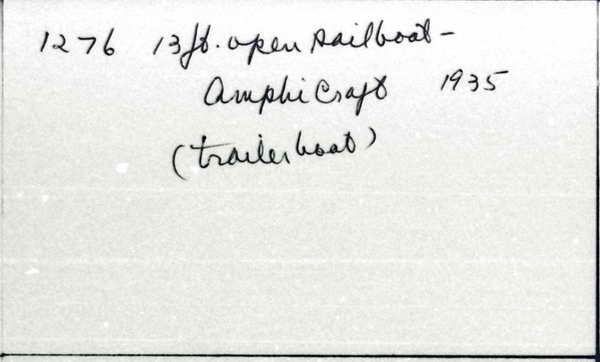 1276 13ft. open sailboat -
AmphiCraft 1935
(trailerboat)